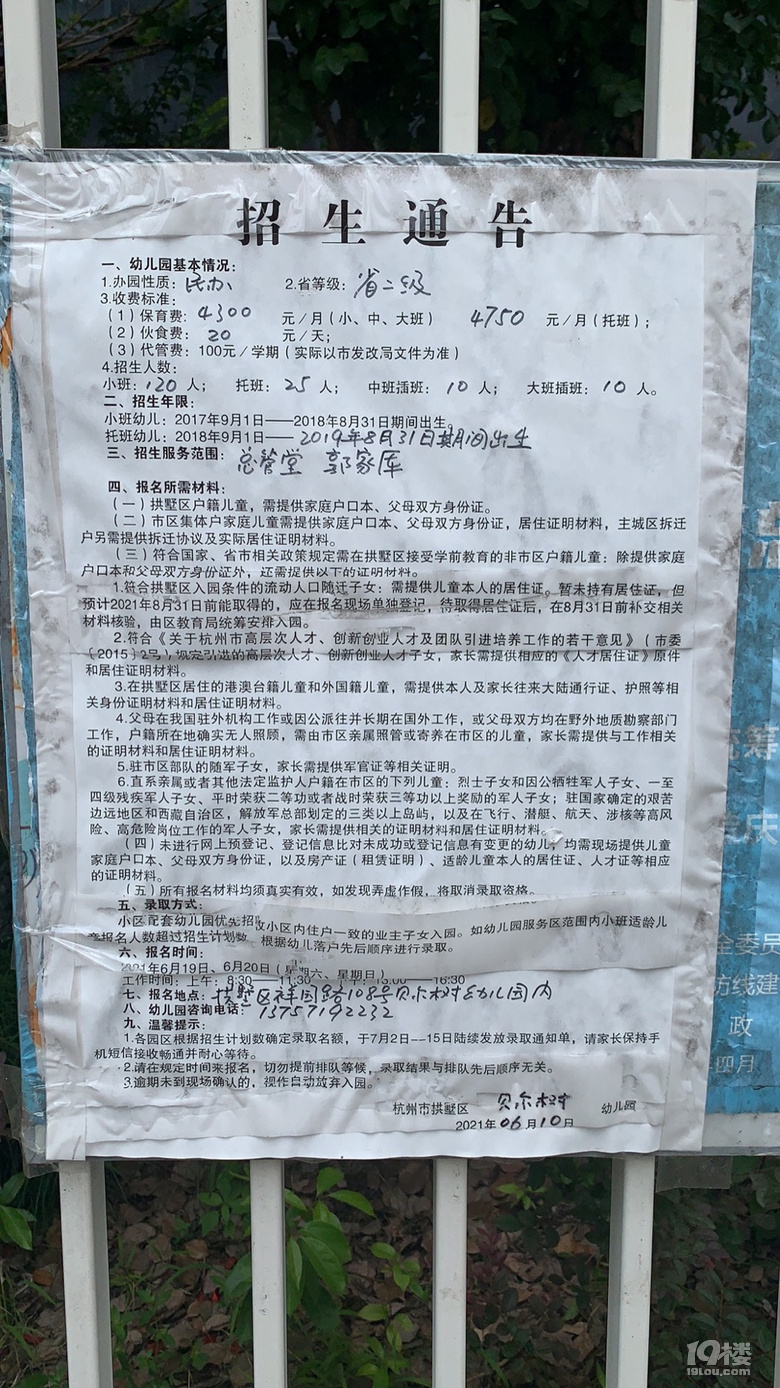 招生通告
一、幼儿园基本情况：
1.办园性质：民办 2.省等级：省二级
3.收费标准：
（1）保育费：4300 元/月（小、中、大班） 4750 元/月（托班）；
（2）伙食费：20 元/天；
（3）代管费：100元/学期（实际以市发改局文件为准）
4.招生人数：
小班：120人； 托班：25人； 中班插班：10人； 大班插班：10人。
二、招生年限：
小班幼儿：2017年9月1日——2018年8月31日期间出生。
托班幼儿：2018年9月1日——2019年8月31日期间出生
三、招生服务范围：总管堂 郭家厍
四、报名所需材料：
（一）拱墅区户籍儿童，需提供家庭户口本、父母双方身份证。
（二）市区集体户家庭儿童需提供家庭户口本、父母双方身份证，居住证明材料，主城区拆迁
户另需提供拆迁协议及实际居住证明材料。
（三）符合国家、省市相关政策规定需在拱墅区接受学前教育的非市区户籍儿童：除提供家庭
户口本和父母双方身份证外，还需提供以下的证明材料。
1.符合拱墅区入园条件的流动人口随迁子女：需提供儿童本人的居住证。暂未持有居住证，但
预计2021年8月31日前能取得的，应在报名现场单独登记，待取得居住证后，在8月31日前补交相关
材料核验，由区教育局统筹安排入园。
2.符合《关于杭州市高层次人才、创新创业人才及团队引进培养工作的若干意见》（市委
〔2015〕2号）规定引进的高层次人才、创新创业人才子女，家长需提供相应的《人才居住证》原件
和居住证明材料。
3.在拱墅区居住的港澳台籍儿童和外国籍儿童，需提供本人及家长往来大陆通行证、护照等相
关身份证明材料和居住证明材料。
4.父母在我国驻外机构工作或因公派往并长期在国外工作，或父母双方均在野外地质勘察部门
工作，户籍所在地确实无人照顾，需由市区亲属照管或寄养在市区的儿童，家长需提供与工作相关
的证明材料和居住证明材料。
5.驻市区部队的随军子女，家长需提供军官证等相关证明。
6.直系亲属或者其他法定监护人户籍在市区的下列儿童：烈士子女和因公牺牲军人子女、一至
四级残疾军人子女、平时荣获二等功或者战时荣获三等功以上奖励的军人子女；驻国家确定的艰苦
边远地区和西藏自治区，解放军总部划定的三类以上岛屿，以及在飞行、潜艇、航天、涉核等高风
险、高危险岗位工作的军人子女，家长需提供相关的证明材料和居住证明材料。
（四）未进行网上预登记、登记信息比对未成功或登记信息有变更的幼儿，均需现场提供儿童
家庭户口本、父母双方身份证，以及房产证（租赁证明）、适龄儿童本人的居住证、人才证等相应
的证明材料。
（五）所有报名材料均须真实有效，如发现弄虚作假，将取消录取资格。
五、录取方式：
小区配套幼儿园优先招收小区内住户一致的业主子女入园。如幼儿园服务区范围内小班适龄儿
童报名人数超过招生计划数，根据幼儿落户先后顺序进行录取。
六、报名时间：
2021年6月19日、6月20日（星期六、星期日）
工作时间：上午：8:30——11:30 下午：13:00——16:30
七、报名地点：拱墅区祥园路108号贝尔树幼儿园内
八、幼儿园咨询电话：13757192232
九、温馨提示：
1.各园区根据招生计划数确定录取名额，于7月2日--15日陆续发放录取通知单，请家长保持手
机短信接收畅通并耐心等待。
2.请在规定时间来报名，切勿提前排队等候，录取结果与排队先后顺序无关。
3.逾期未到现场确认的，视作自动放弃入园。
杭州市拱墅区 贝尔树 幼儿园
2021年06月10日
筹
庆
全委员
防线建
政
四月
19楼
19lou.com